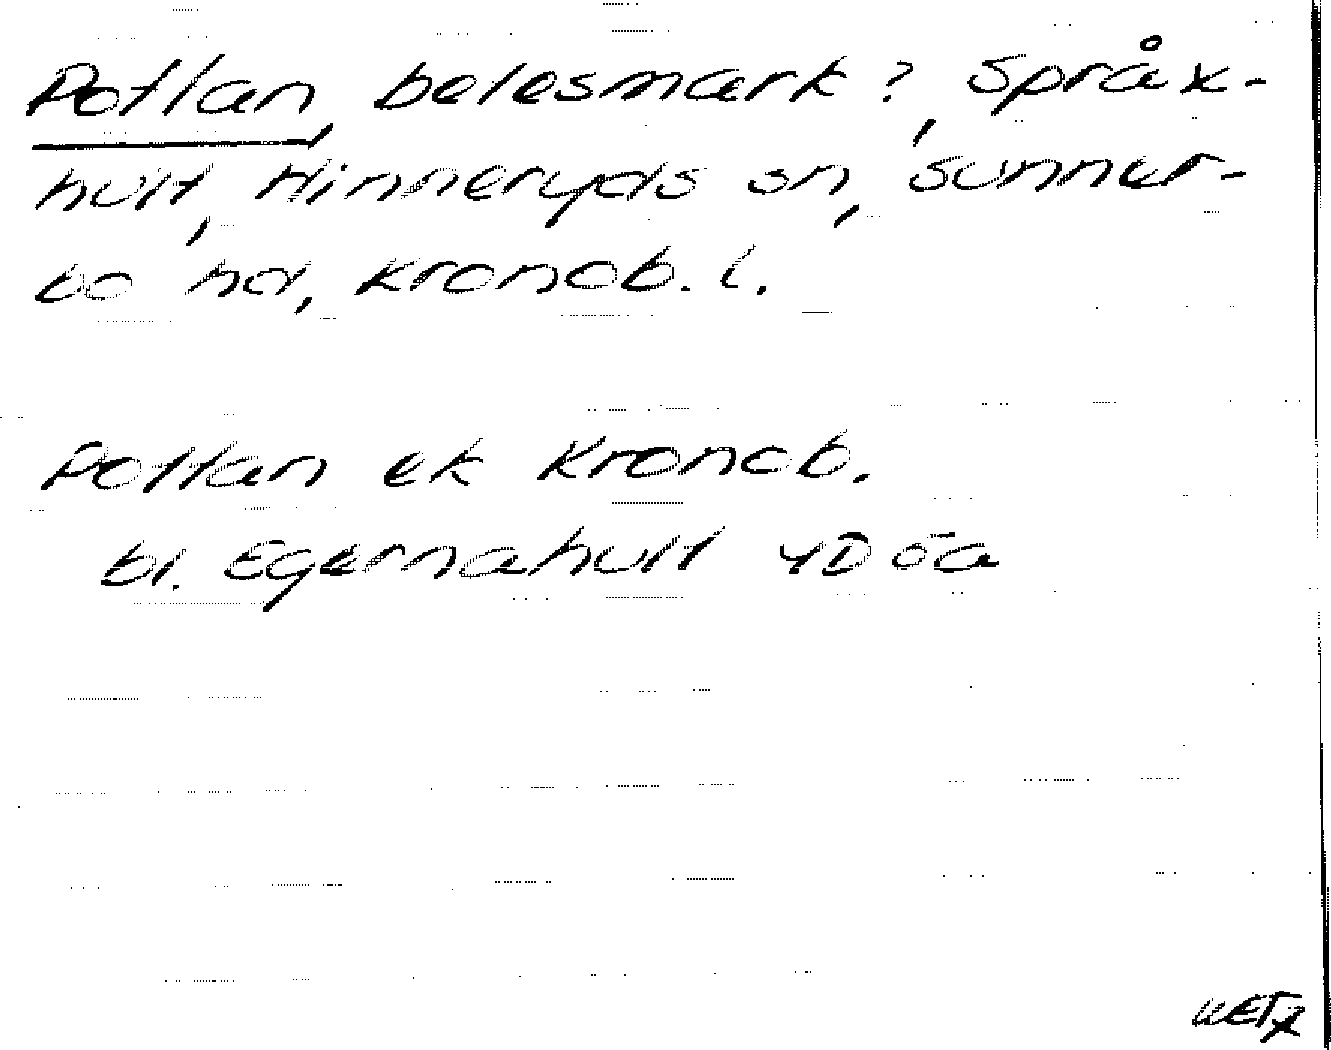 Potlan, betesmark?, Språx-
hult, Hinneryds sn, Sunner-
bo hd, Kronob. l.
Potlan ek Kronob.
bl. Egernahult 4D öa